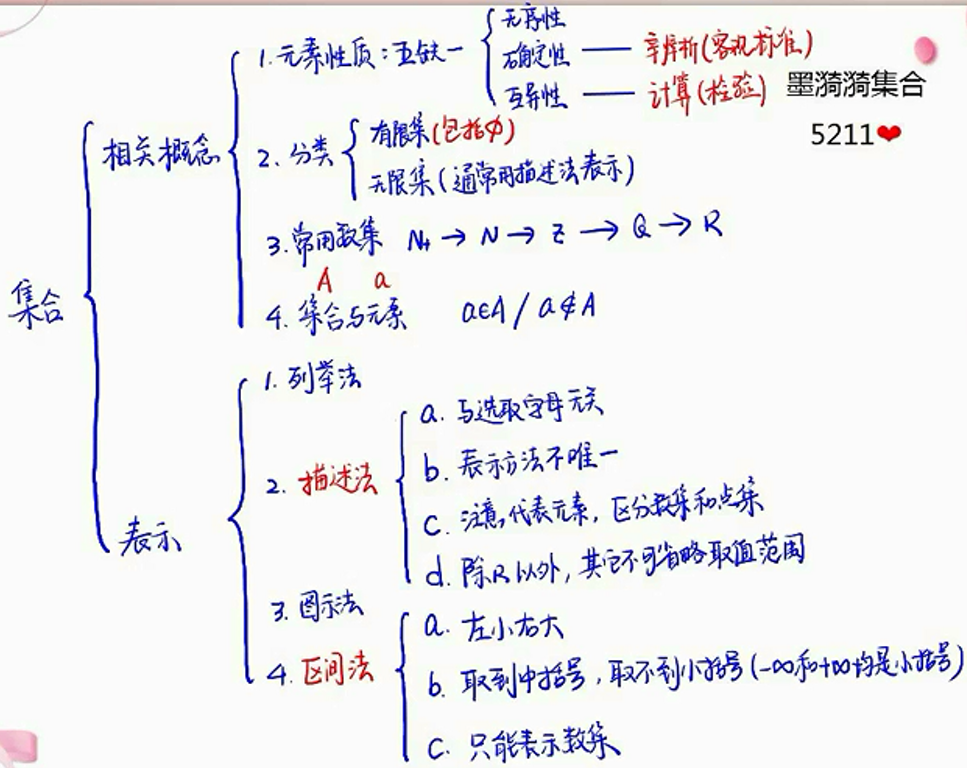 集合
相关概念
1. 元素性质：五缺一
无序性
确定性 —— 辨析(客观标准)
互异性 —— 计算(检验)
墨漪漪集合
5211❤
2. 分类
有限集(包括∅)
无限集(通常用描述法表示)
3. 常用数集 N₊ → N → Z → Q → R
A a
4. 集合与元素 a∈A / a∉A
表示
1. 列举法
2. 描述法
a. 与选取字母无关
b. 表示方法不唯一
c. 注意代表元素，区分数集和点集
d. 除R以外，其它不可省略取值范围
3. 图示法
4. 区间法
a. 左小右大
b. 取到中括号，取不到小括号(-∞和+∞均是小括号)
c. 只能表示数集